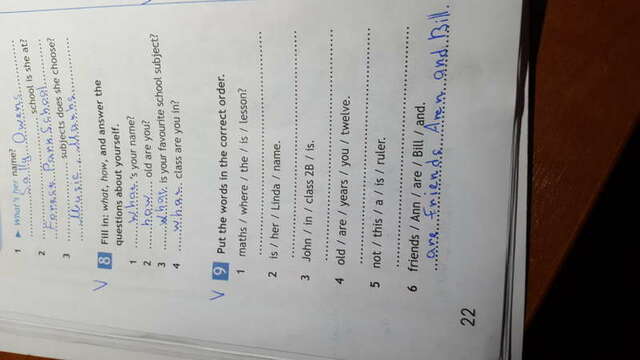 1 ► What's her name?
Sally Owens
2 .............................. school is she at?
Forest Park School
3 .............................. subjects does she choose?
Music, Maths
V 8 Fill in: what, how, and answer the
questions about yourself.
1 ......What 's your name?
2 ......how...... old are you?
3 ......what. is your favourite school subject?
4 .....what. class are you in?
V 9 Put the words in the correct order.
1 maths / where / the / is / lesson?
2 is / her / Linda / name.
3 John / in / class 2B / is.
4 old / are / years / you / twelve.
5 not / this / a / is / ruler.
6 friends / Ann / are / Bill / and.
are Friends Aren and Bill.
22